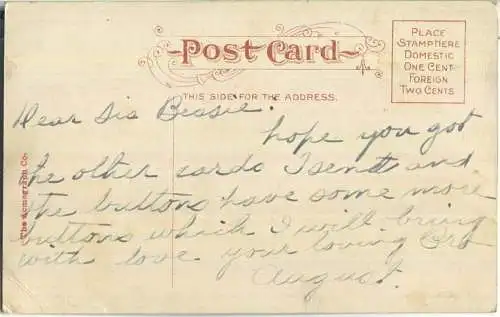 Post Card
PLACE
STAMP HERE
DOMESTIC
ONE CENT
FOREIGN
TWO CENTS
THIS SIDE FOR THE ADDRESS.
Dear Sis Bessie:
hope you got
the other cards I send and
the buttons have some more
buttons which I will bring
with love your loving Bro
August.
The Acmegraph Co.